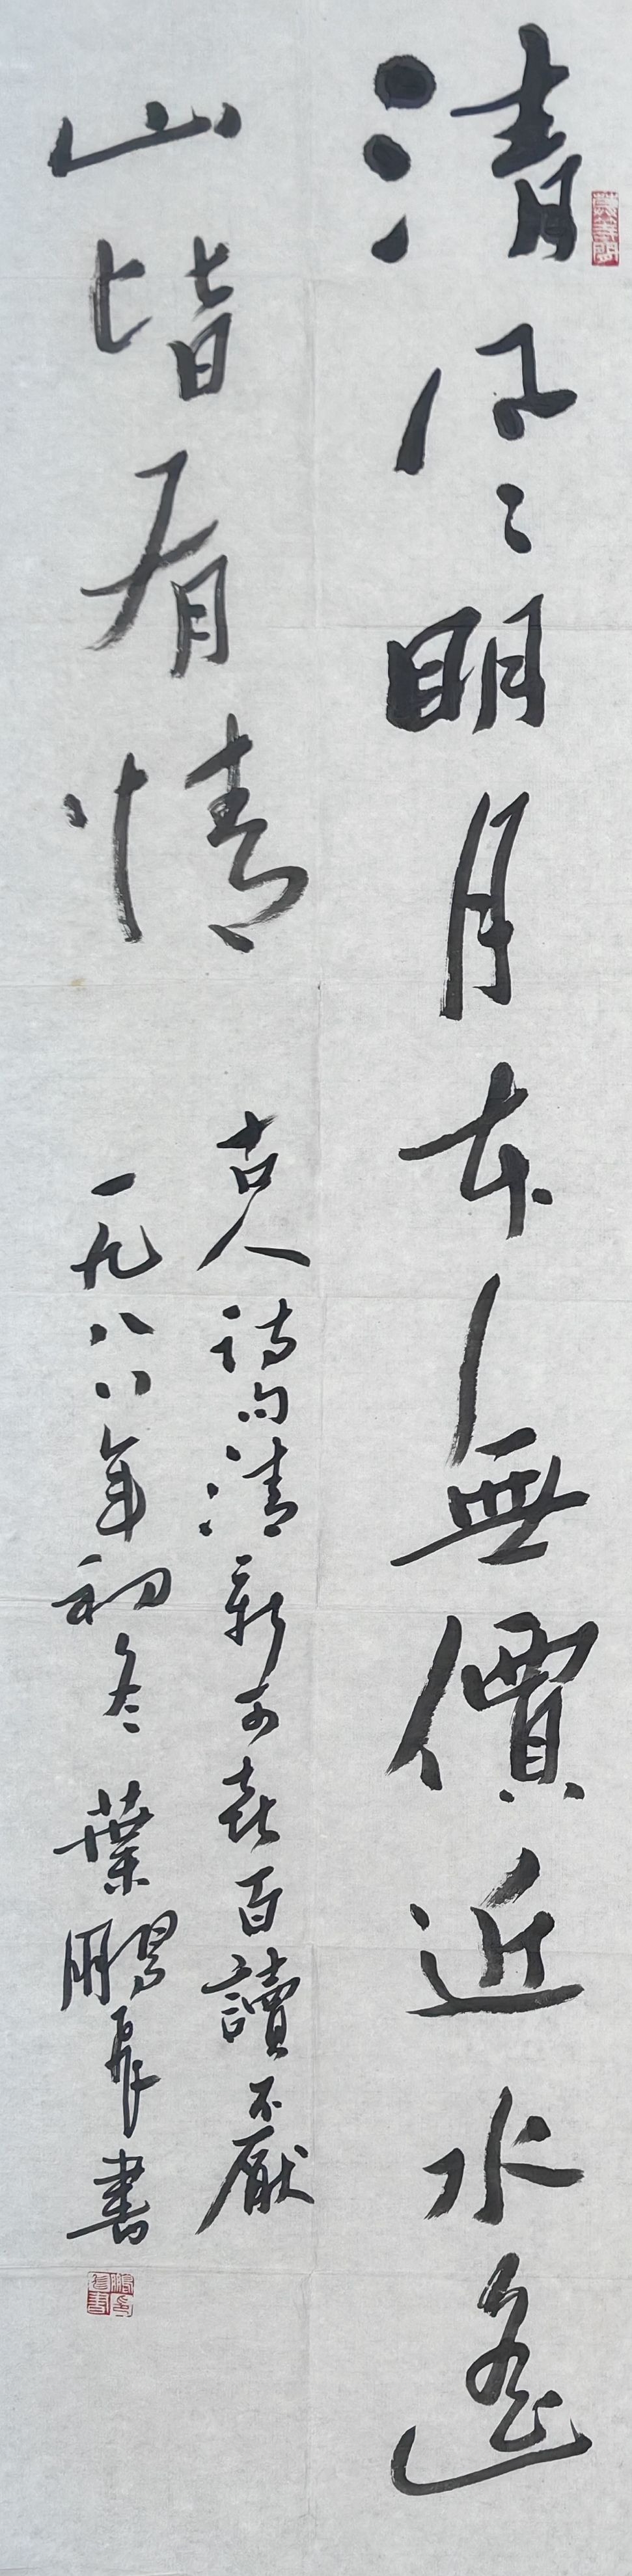 清風明月本無價近水遙
山皆有情
古人詩句清新可喜百讀不厭
一九八八年初冬 葉鵬飛書